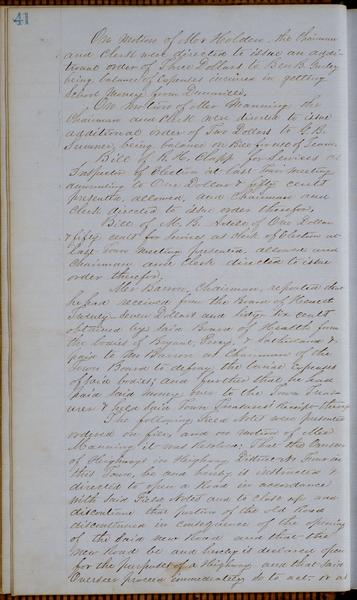 41
On motion of Mr Holden, the Chairman
and Clerk were directed to issue an addi-
tional order of Three Dollars to Ben B.
being balance of expenses incurred in getting
School money from
On motion of Mr Manning the
Chairman and Clerk were directed to issue
additional order of Two Dollars to G.B.
Sumner, being balance on Bill for use of
Bill of R. H. Clapp for Services as
Inspector of Election at last Town meeting
amounting to One Dollar & fifty cents
presented, allowed, and Chairman and
Clerk directed to issue order therefor,
Bill of M. B. of One Dollar
& fifty cents for Service as Clerk of Election at
last Town meeting presented, allowed and
Chairman and Clerk directed to issue
order therefor,
Mr Barron, Chairman, reported that
he had received from the Board of Health
Twenty Seven Dollars and Sixty Six cents
obtained by said Board of Health from
the bodies of Bryant, Perry, & Sutherland &
paid to Mr Barron as Chairman of the
Town Board to defray the burial expenses
of said bodies, and further that he had
paid said money over to the Town Treas-
urer & held said Town Treasurers Receipt
The following Field Notes were presented
ordered on file, and on motion of Mr
Manning it was Resolved, That the Overseer
of Highways in Highway District No Four in
this Town, be and hereby is instructed &
directed to open a Road in accordance
with said Field Notes and to close up and
discontinue that portion of the old Road
discontinued in consequence of the opening
of the said new Road and that the
new Road be and hereby is declared open
for the purposes of a Highway and that said
Overseer proceed immediately so to act,